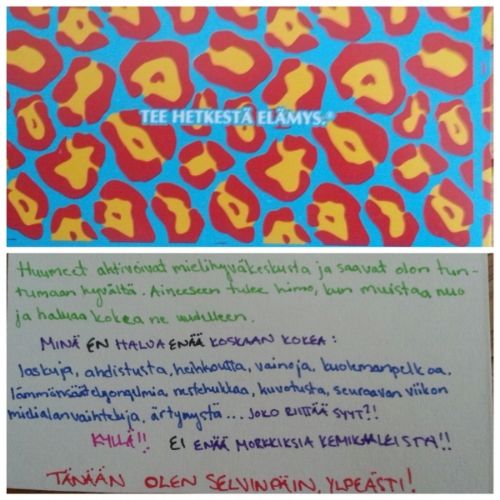 TEE HETKESTÄ ELÄMYS.®
Huumeet aktivoivat mielihyväkeskusta ja saavat olon tun-
tumaan hyvältä. Aineeseen tulee himo, kun muistaa nuo
ja haluaa kokea ne uudelleen.
MINÄ EN HALUA ENÄÄ KOSKAAN KOKEA:
laskuja, ahdistusta, heikkoutta, vainoja, kuolemanpelkoa,
lämmönsäätelyongelmia, nestehukkaa, kuvotusta, seuraavan viikon
mielialanvaihteluja, ärtymystä... JOKO RIITTÄÄ SYYT?!
KYLLÄ!! EI ENÄÄ MORKKIKSIA KEMIKAALEISTA!!
TÄNÄÄN OLEN SELVINPÄIN, YLPEÄSTI!